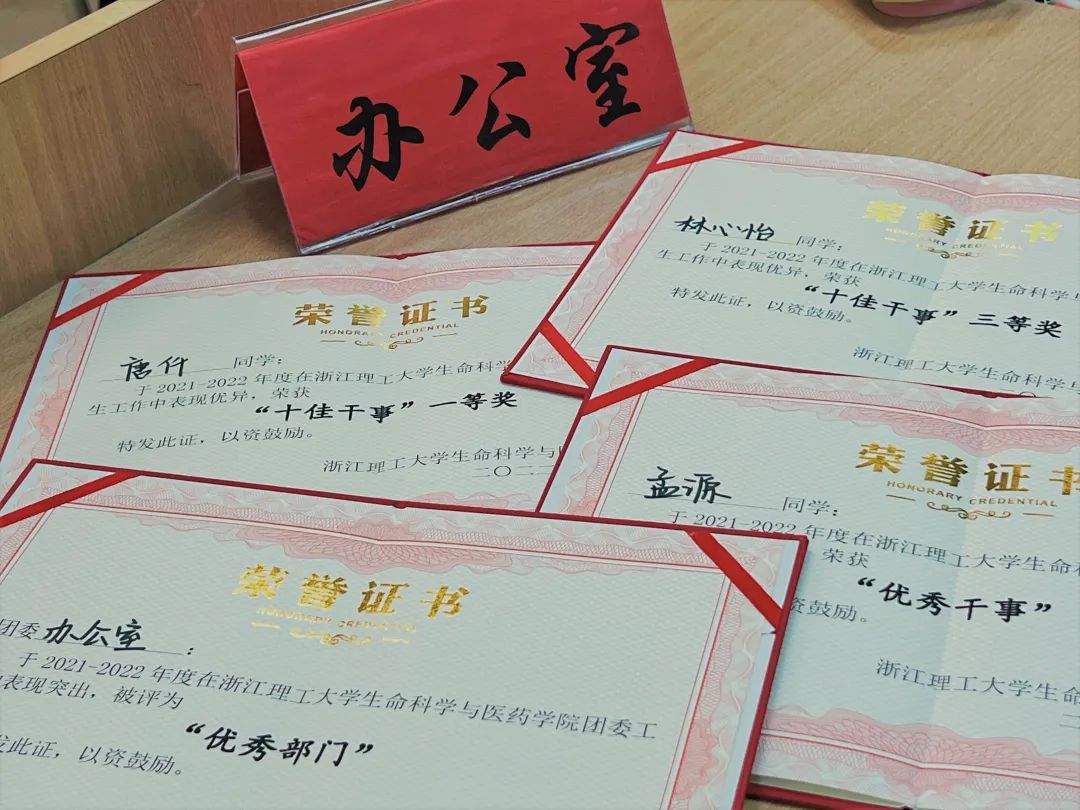 办公室
荣誉证书
HONORARY CREDENTIAL
林心怡 同学:
于2021-2022年度在浙江理工大学生命科学与
生工作中表现优异,荣获
“十佳干事”三等奖
特发此证,以资鼓励。
浙江理工大学生命科学与
荣誉证书
HONORARY CREDENTIAL
唐仟 同学:
于2021-2022年度在浙江理工大学生命科学
生工作中表现优异,荣获
“十佳干事”一等奖
特发此证,以资鼓励。
浙江理工大学生命科学与
二〇二二
荣誉证书
HONORARY CREDENTIAL
孟源 同学:
于2021-2022年度在浙江理工大学生命科
荣获
“优秀干事”
资鼓励。
浙江理工大学生命
荣誉证书
HONORARY CREDENTIAL
团委办公室:
于2021-2022年度在浙江理工大学生命科学与医药学院团委工
中表现突出,被评为
“优秀部门”
发此证,以资鼓励。